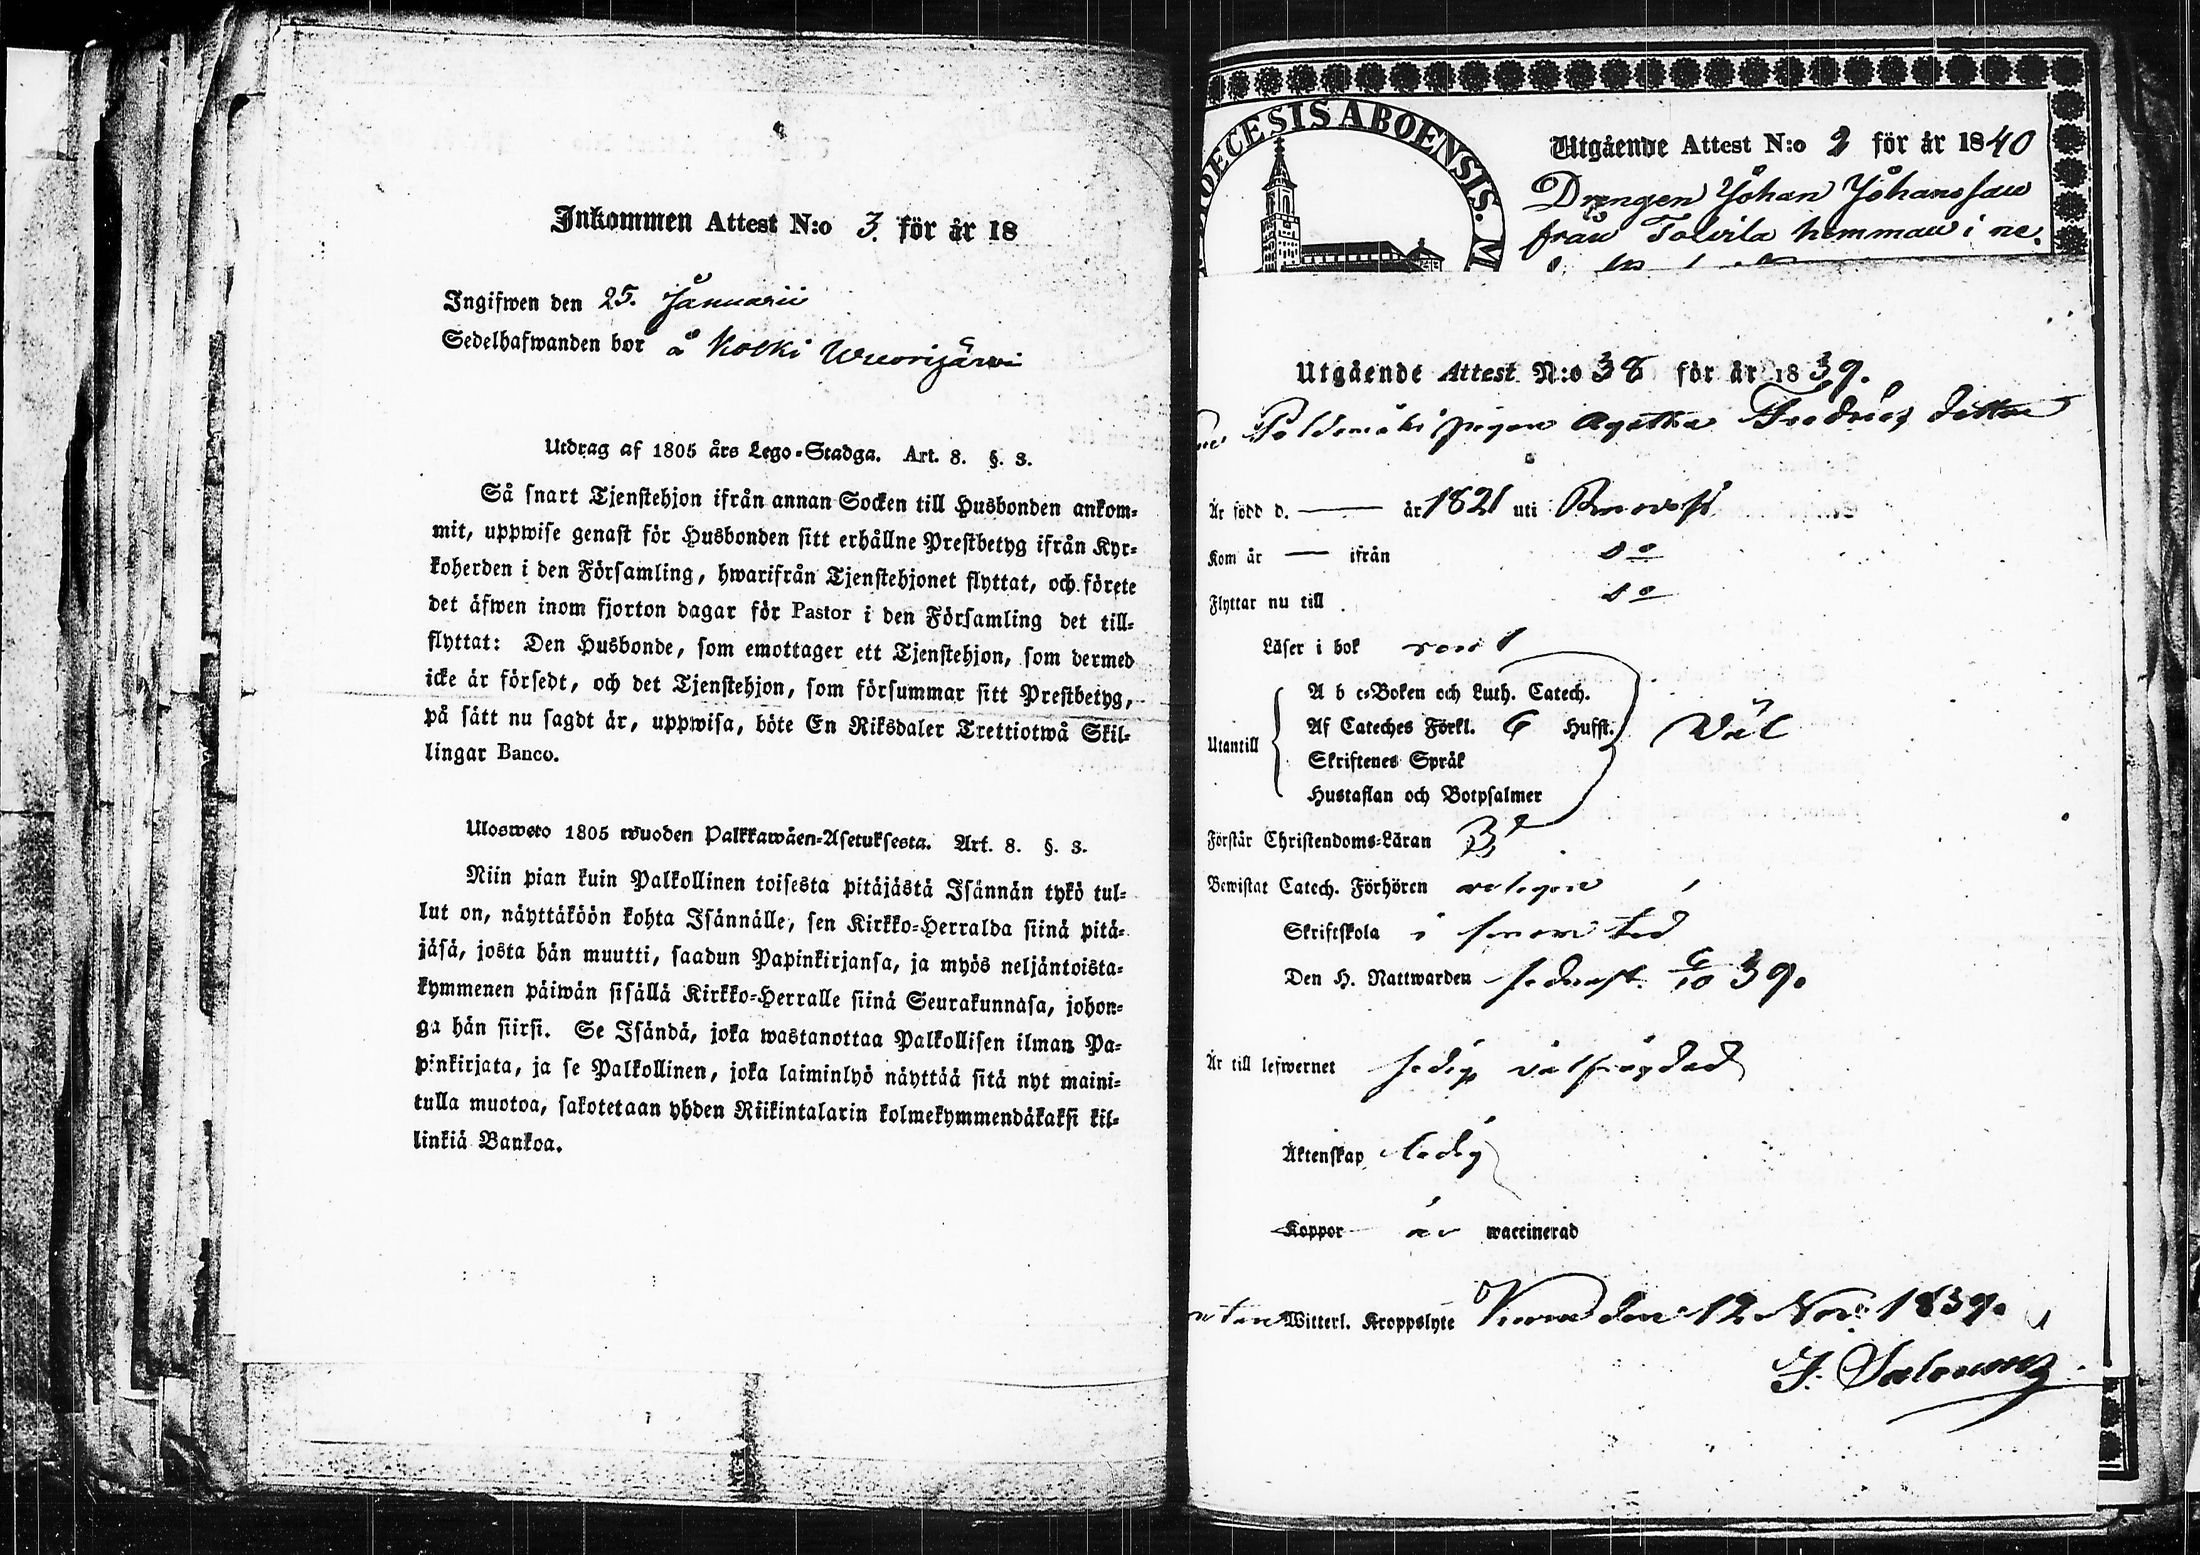 Inkommen Attest N:o 3. för år 18
Ingifwen den 25. Januarii
Sedelhafwanden bor å Koski Wuorijärwi
Utdrag af 1805 års Lego-Stadga. Art. 8. §. 3.
Så snart Tjenstehjon ifrån annan Socken till Husbonden ankom-
mit, uppwise genast för Husbonden sitt erhållne Prestbetyg ifrån Kyr-
koherden i den Församling, hwarifrån Tjenstehjonet flyttat, och förete
det äfwen inom fjorton dagar för Pastor i den Församling det till-
flyttat: Den Husbonde, som emottager ett Tjenstehjon, som dermed
icke är försedt, och det Tjenstehjon, som försummar sitt Prestbetyg,
på sätt nu sagdt är, uppwisa, böte En Riksdaler Trettiotwå Skil-
lingar Banco.
Ulosweto 1805 wuoden Palkkawäen-Asetuksesta. Art. 8. §. 3.
Niin pian kuin Palkollinen toisesta pitäjästä Isännän tykö tul-
lut on, näyttäköön kohta Isännälle, sen Kirkko-Herralda siinä pitä-
jäsä, josta hän muutti, saadun Papinkirjansa, ja myös neljäntoista-
kymmenen päiwän sisällä Kirkko-Herralle siinä Seurakunnasa, johon-
ga hän siirsi. Se Isändä, joka wastanottaa Palkollisen ilman Pa-
pinkirjata, ja se Palkollinen, joka laiminlyö näyttää sitä nyt maini-
tulla muotoa, sakotetaan yhden Riikintalarin kolmekymmendäkaksi kil-
linkiä Bankoa.
DIOECESIS ABOENSIS. M
Utgående Attest N:o 2 för år 1840
Drengen Johan Johansson
från Tolvila hemman i ne.
Utgående Attest N:o 38 för år 1839.
pigan Agatha Fredrics dotter
Är född d. — år 1821 uti
Kom år — ifrån do
Flyttar nu till do
Läser i bok rent
Utantill
A b c-Boken och Luth. Catech.
Af Cateches Förkl. 6 Hufst.
Skriftenes Språk
Hustaflan och Botpsalmer
Väl
Förstår Christendoms-Läran
Bewistat Catech. Förhören
Skriftskola i
Den H. Nattwarden sednast 6/10 39.
Är till lefwernet sedig välfrägdad
Äktenskap ledig
Koppor är waccinerad
utan Witterl. Kroppslyte den 12 Nov. 1839.